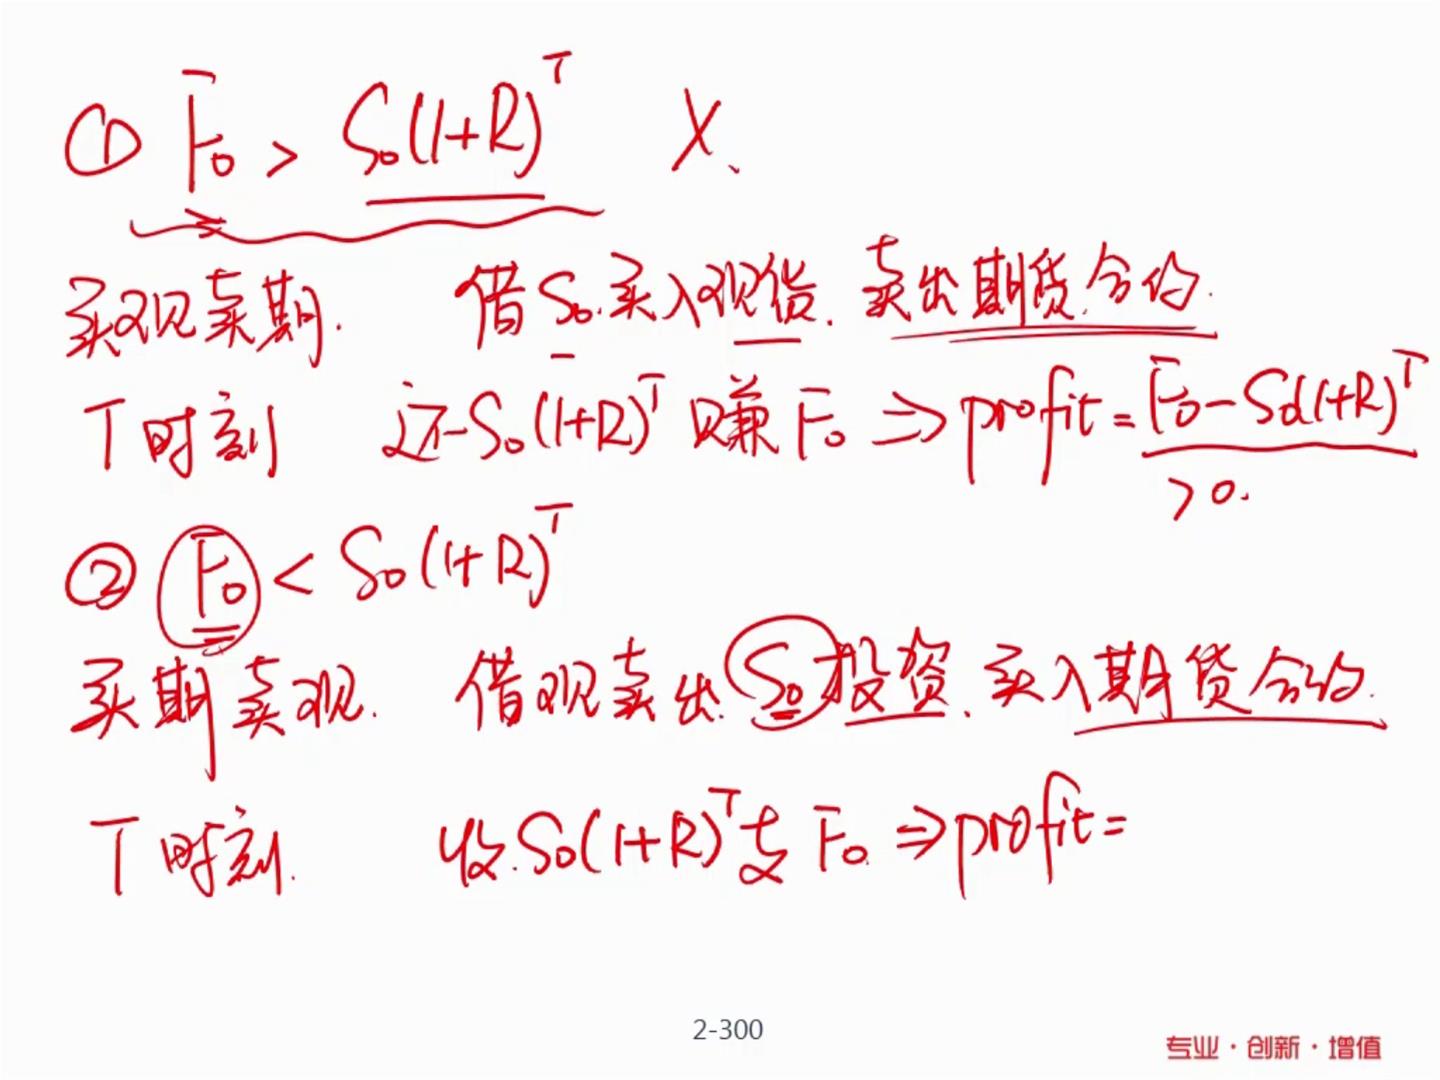 ① F₀ > S₀(1+R)^T X
买现卖期. 借S₀.买入现货. 卖出期货合约.
T时刻 还S₀(1+R)^T 赚F₀ ⇒ profit = F₀-S₀(1+R)^T
>0.
② F₀ < S₀(1+R)^T
买期卖现. 借现卖出S₀投资. 买入期货合约.
T时刻. 收.S₀(1+R)^T 支F₀. ⇒ profit =
2-300
专业·创新·增值